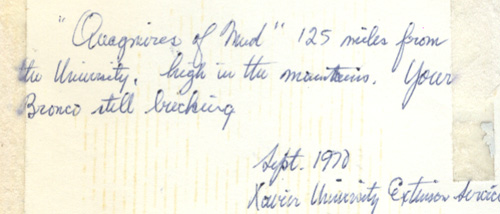 "Quagmires of Mud" 125 miles from
the University, high in the mountains. Your
Bronco still bucking
Sept. 1970
Xavier University Extension Service